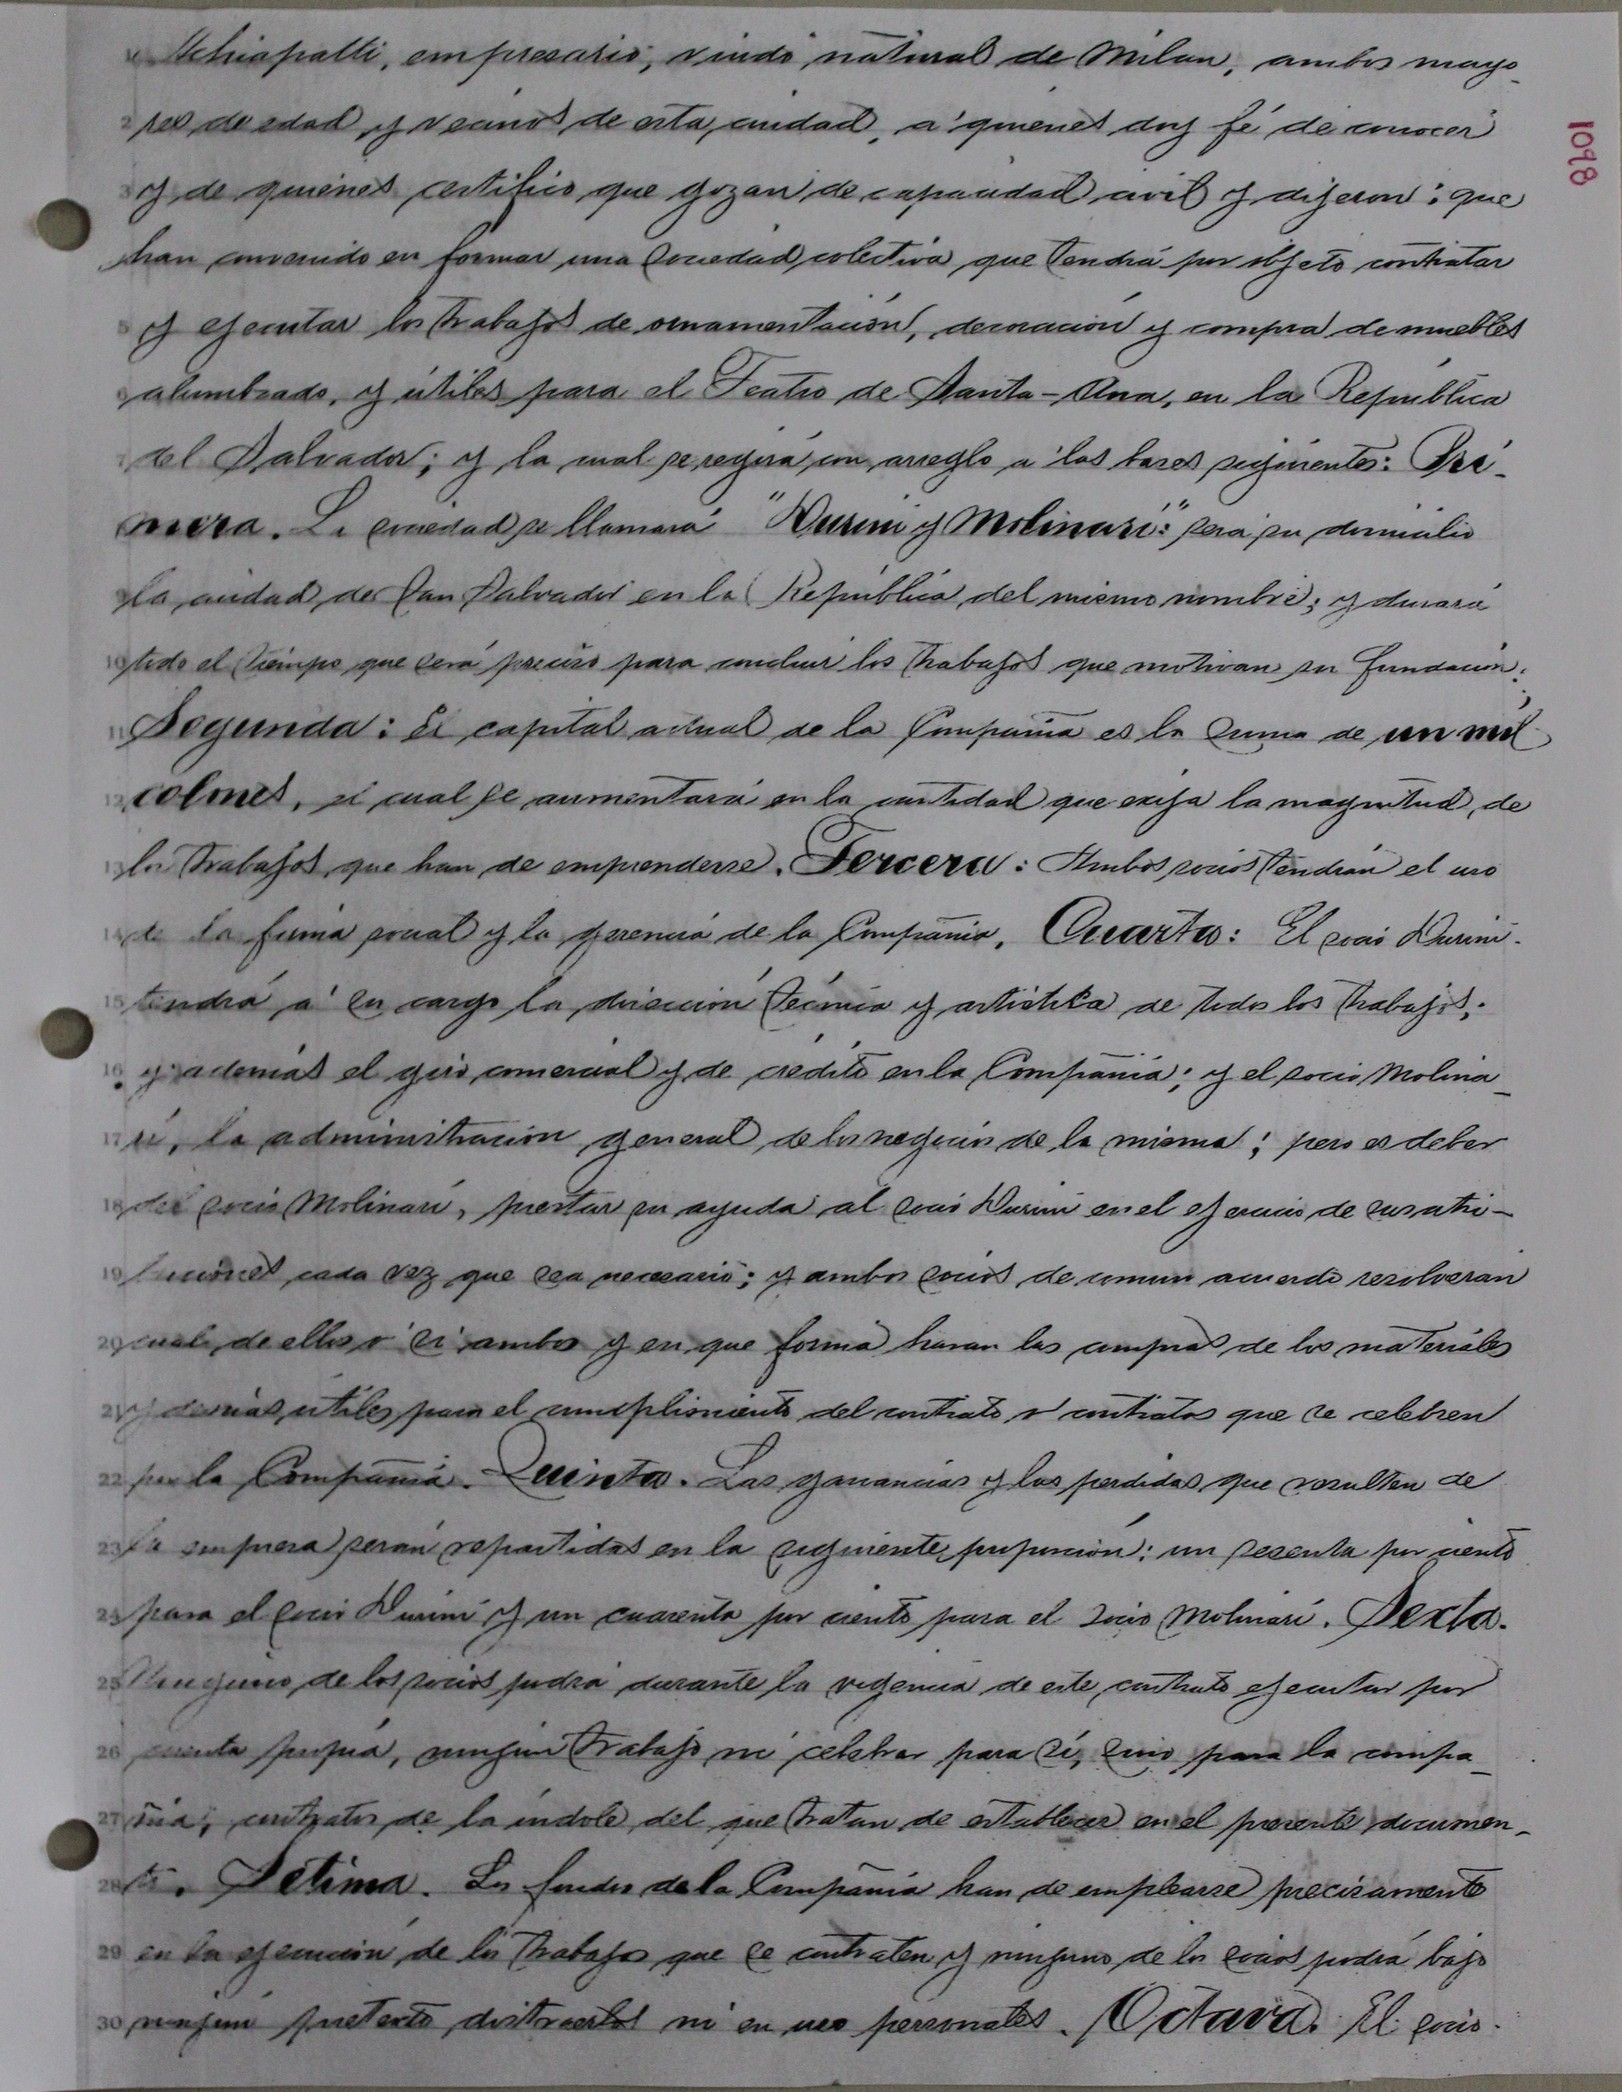 1098
1 Schiapatti, empresario, viudo natural de Milan, ambos mayo-
2 res de edad y vecinos de esta ciudad, a' quienes doy fé de conocer
3 y de quienes certifico que gozan de capacidad civil y dijeron: que
han convenido en formar una sociedad colectiva que tendrá por objeto contratar
5 y ejecutar los trabajos de ornamentación, decoración y compra de muebles
6 alumbrado, y útiles para el Teatro de Santa-Ana, en la República
7 del Salvador; y la cual se regirá con arreglo a' las bases siguientes: Pri-
mera. La sociedad se llamará "Durini y Molinari:" será su domicilio
9 la ciudad de San Salvador en la República del mismo nombre; y durará
10 todo el tiempo que será preciso para concluir los trabajos que motivan su fundación:
11 Segunda: El capital actual de la Compañia es la suma de un mil
12 colones, el cual se aumentará en la cantidad que exija la magnitud de
13 los trabajos que han de emprenderse. Tercera: Ambos socios tendrán el uso
14 de la firma social y la gerencia de la Compañia. Cuarta: El socio Durini
15 tendrá a' su cargo la dirección técnica y artistica de todos los trabajos;
16 y además el giro comercial y de crédito en la Compañia; y el socio Molina-
17 ri, la administración general de los negocios de la misma; pero es deber
18 del socio Molinari, prestar su ayuda al socio Durini en el ejercicio de sus atri-
19 buciones cada vez que sea necesario; y ambos socios de comun acuerdo resolveran
20 cual de ellos o' si ambos y en que forma haran las compras de los materiales
21 y demás útiles para el cumplimiento del contrato o' contratos que se celebren
22 por la Compañia. Quinta. Las ganancias y las perdidas que resulten de
23 la empresa serán repartidas en la siguiente proporción: un sesenta por ciento
24 para el socio Durini y un cuarenta por ciento para el socio Molinari. Sexta.
25 Ninguno de los socios podrá durante la vigencia de este contrato ejecutar por
26 cuenta propia, ningun trabajo ni celebrar para sí, sino para la compa-
27 ñia, contratos de la indole del que tratan de establecer en el presente documen-
28 to. Setima. Los fondos de la Compañia han de emplearse precisamente
29 en la ejecución de los trabajos que se contraten y ninguno de los socios podrá bajo
30 ningun pretexto distraerlos ni en uso personales. Octava. El socio